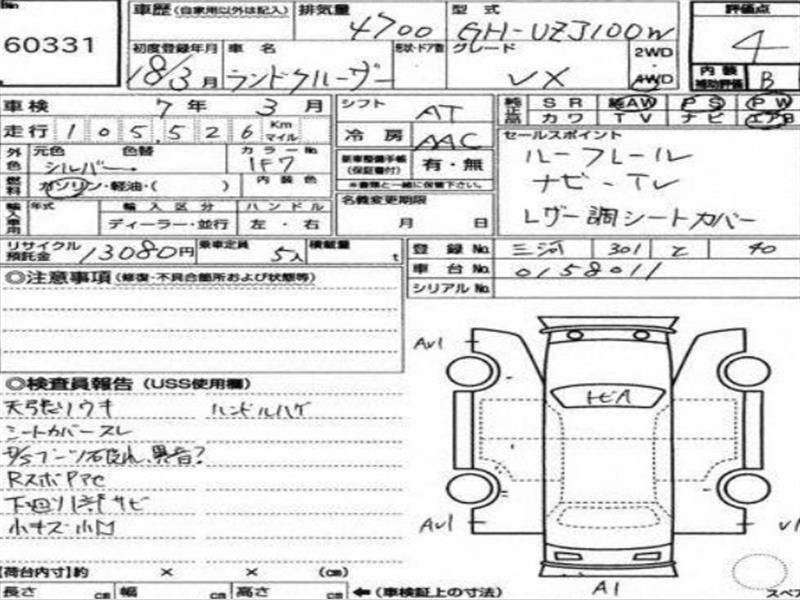 No. 60331
車歴(自家用以外は記入) 排気量 4700 型式 GH-UZJ100W 評価点 4
初度登録年月 18/3月 車名 ランドクルーザー 形状・ドア数 グレード VX 2WD 4WD 内装補助評価 B
車検 7年 3月 シフト AT 純正品 SR 純AW PS PW
走行 105,526 Km マイル 冷房 AAC カワ TV ナビ エアB
外色 元色 シルバー 色替 カラーNo. 1F7 新車整備手帳(保証書付) 有・無 セールスポイント
燃料 ガソリン・軽油・( ) 内装色 ※書類と一緒に保管下さい。 ルーフレール
輸入車用 年式 輸入区分 ハンドル 名義変更期限 ナビ-TV
ディーラー・並行 左・右 月 日 レザー調シートカバー
リサイクル預託金 13080円 乗車定員 5人 積載量 t 登録No. 三河 301 と 40
車台No. 0158011
シリアルNo.
◎注意事項(修復・不具合箇所および状態等)
◎検査員報告(USS使用欄)
天張りウキ ハンドルハゲ
シートカバースレ
P/Sブーツ破れ、異音?
下廻り サビ
小キズ・小凹
AU1
トビA
AU1
A1
【荷台内寸】約 × × (cm)
長さ cm 幅 cm 高さ cm ←(車検証上の寸法)
スペア